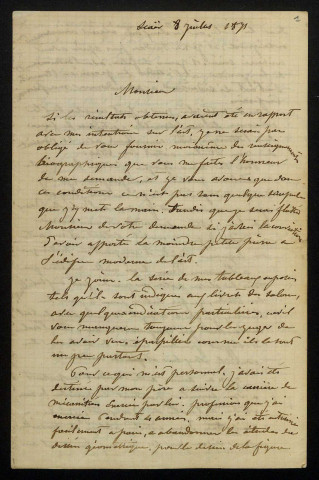 2
Scaër 8 juillet 1871
Monsieur
Si les résultats obtenus, avaient été en rapport
avec mes intentions sur l'art, je ne serais pas
obligé de vous fournir moi même les renseignements
biographiques que vous me faites l'honneur
de me demander, et je vous avoue que dans
ces conditions ce n'est pas sans quelque scrupule
que j'y mets la main. Tandis que je serais flatté
Monsieur de votre demande si j'avais la conviction
d'avoir apporté la moindre petite pierre à
l'édifice moderne de l'art.
Je joins la série de mes tableaux exposés
tels qu'ils sont indiqués aux livrets des Salons,
avec quelques indications particulières, mais il
vous manquera toujours pour les juger de
les avoir vus, éparpillés comme ils le sont
un peu partout.
Pour ce qui m'est personnel, j'avais été
destiné par mon père à suivre la carrière de
mécanicien exercée par lui, profession que j'ai
exercée pendant 4 années, mais j'ai été autorisé
facilement à Paris, à abandonner les études du
dessin géométrique, pour le dessin de la figure